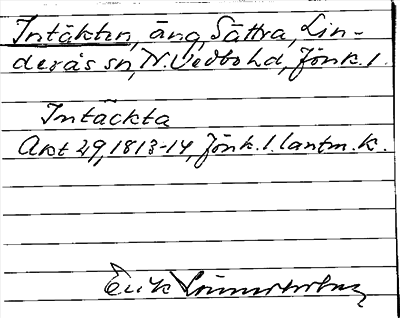 Intäkten, äng, Sättra, Lin-
derås sn, N. Vedbo hd, Jönk. l.
Intäckta
Akt 29, 1813-14, Jönk. l. lantm. k.
Erik